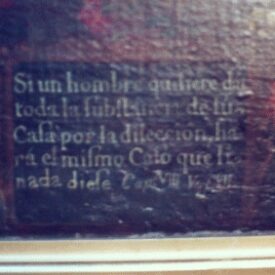 Si un hombre quisiere dar
toda la substancia de su
Casa por la dileccion, ha
rá el mismo Caso que si
nada diese Cap. VIII